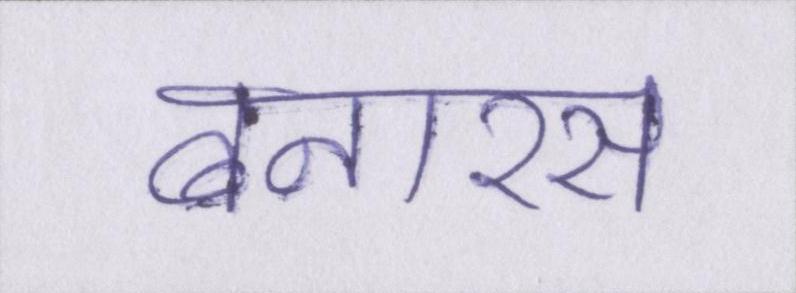 बनारस